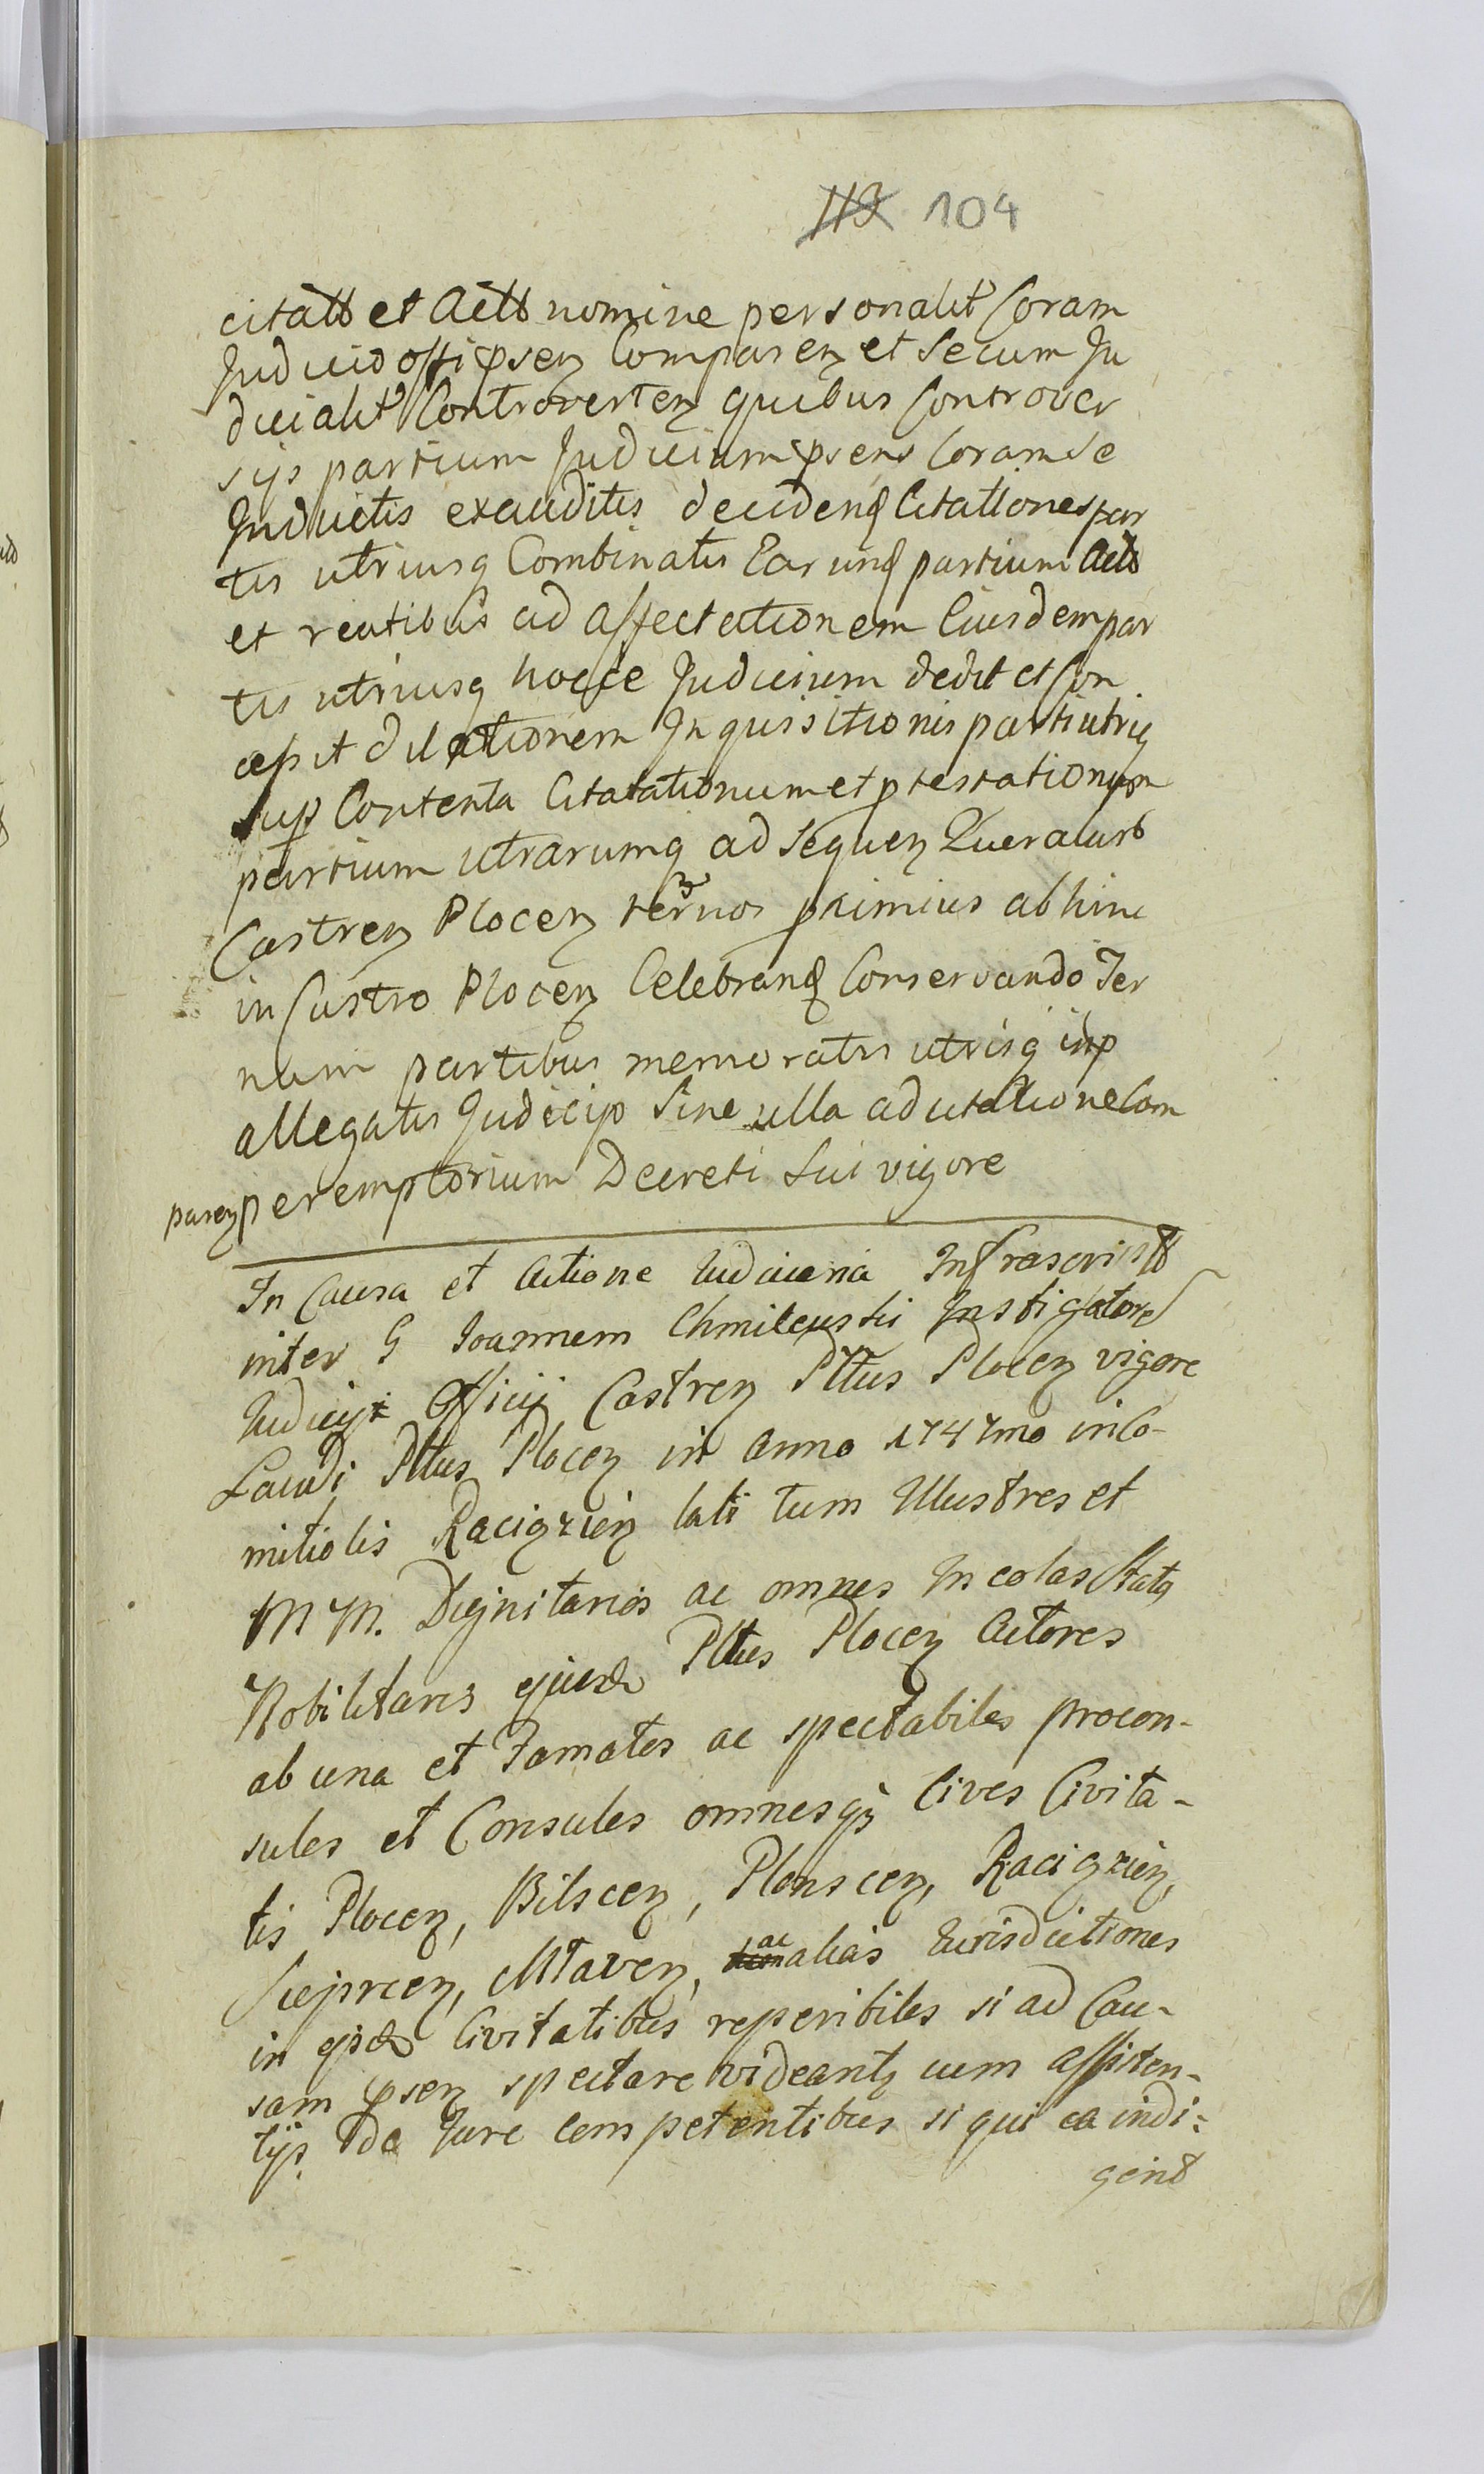 113 104
citatt et Actt nomine personalit Coram
Judicio offi psen Comparen et Secum Ju
dicialit Controverten quibus Controver
sijs partium Judicium psens Coram Se
Inductis exauditis decidend Citationes par
tis utriusq Combinatis Earund partium Actt
et reatibus ad affectationem Eiusdem par
tis utriusq hocce Judicium dedit et Con
cessit dilationem Inquisitionis parti utriq
sup Contenta Citatationum et ptestationum
partium utrarumq ad Sequen
Castren Plocen ternos pximius abhinc
in Castro Plocen Celebrand Conservando Ter
num partibus memoratis utrisq
allegatis Judicijs Sine ulla adcitatione Com
paren peremptorium Decreti Sui vigore
In Causa et Actione Judiciaria Infrascriptt
inter G Joannem Chmilewski Instigatore
Judicij Officij Castren Pttus Plocen vigore
Laudi Pttus Plocen in Anno 1747mo in Co-
mitiolis Raciązien lati tum Illustres et
M M. Dignitarios ac omnes Incolas Statq
Nobilitaris ejusd Pttus Plocen Actores
ab una et Famatos ac spectabiles procon-
sules et Consules omnesq Cives Civita-
tis Plocen, Bilscen, Plonscen, Raciązien,
Sieprcen, Mlaven, ac alias Jurisdictiones
in ejsd Civitatibus reperibiles si ad Cau-
sam psen spectare videantq cum assisten-
tijs de Jure Competentibus si qui ea indi-
gent